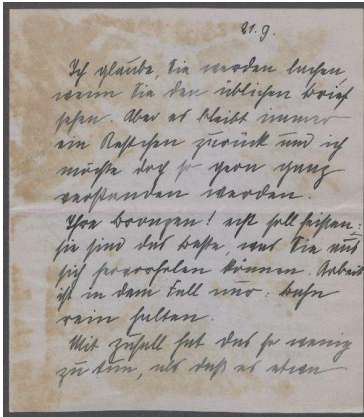 21.9.
Ich glaube, Sie werden lachen,
wenn Sie den üblichen Brief
sehen. Aber es bleibt immer
ein Restchen zurück und ich
möchte doch so gern ganz
verstanden werden.
Ihre Bronzen! erst soll
sie sind das Beste, was Sie aus
sich hervorholen können. Arbeit
ist in dem Fall nur: Bahn
rein halten.
Mit Zufall hat das so wenig
zu tun, als daß es etwa